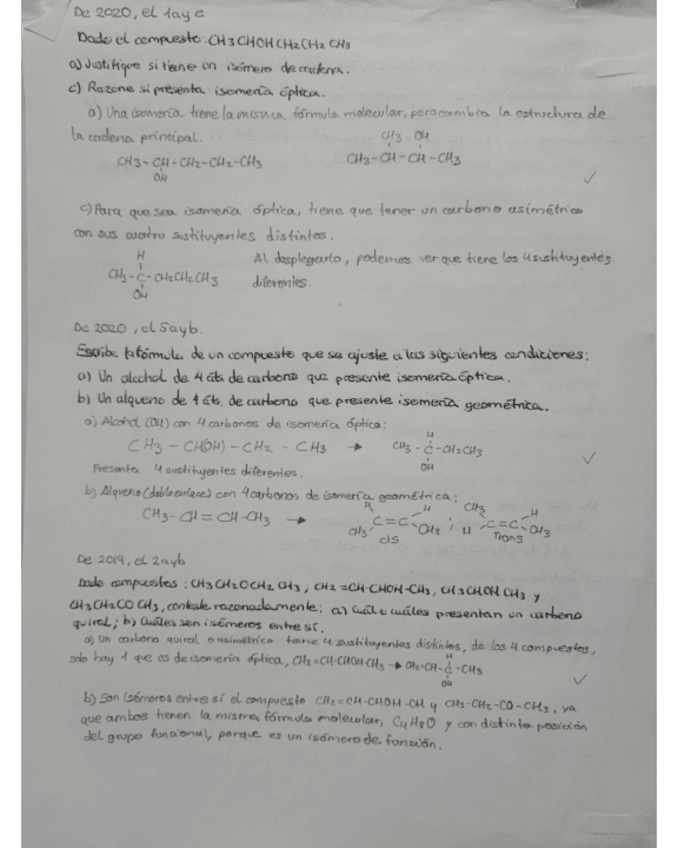 De 2020, el 1a y c
Dado el compuesto: CH3CHOHCH2CH2CH3
a) Justifique si tiene un isómero de cadena.
c) Razone si presenta isomería óptica.
a) Una isomería tiene la misma fórmula molecular, pero cambia la estructura de
la cadena principal.
CH3 OH
CH3-CH-CH2-CH2-CH3 CH3-CH-CH-CH3
OH
c) Para que sea isomería óptica, tiene que tener un carbono asimétrico
con sus cuatro sustituyentes distintos.
H
CH3-C-CH2CH2CH3
OH
Al desplegarlo, podemos ver que tiene los 4 sustituyentes
diferentes.
De 2020, el 5a y b.
Escribe la fórmula de un compuesto que se ajuste a las siguientes condiciones:
a) Un alcohol de 4 áts de carbono que presente isomería óptica.
b) Un alqueno de 4 áts. de carbono que presente isomería geométrica.
a) Alcohol (OH) con 4 carbonos de isomería óptica:
H
CH3-CH(OH)-CH2-CH3 → CH3-C-CH2CH3
OH
Presenta 4 sustituyentes diferentes.
b) Alqueno (doble enlace) con 4 carbonos de isomería geométrica:
H H CH3 H
CH3-CH=CH-CH3 → C=C ; C=C
CH3 CH3 H CH3
cis Trans
De 2019, el 2a y b
Dado compuestos: CH3CH2OCH2CH3; CH2=CH-CHOH-CH3, CH3CHOHCH3 y
CH3CH2COCH3, conteste razonadamente: a) Cuál o cuáles presentan un carbono
quiral; b) Cuáles son isómeros entre sí.
a) Un carbono quiral o asimétrico tiene 4 sustituyentes distintos, de los 4 compuestos,
H
solo hay 1 que es de isomería óptica, CH2=CH-CHOH-CH3 → CH2=CH-C-CH3
OH
b) Son isómeros entre sí el compuesto CH2=CH-CHOH-CH y CH3-CH2-CO-CH3, ya
que ambos tienen la misma fórmula molecular, C4H8O y con distinta posición
del grupo funcional, porque es un isómero de función.